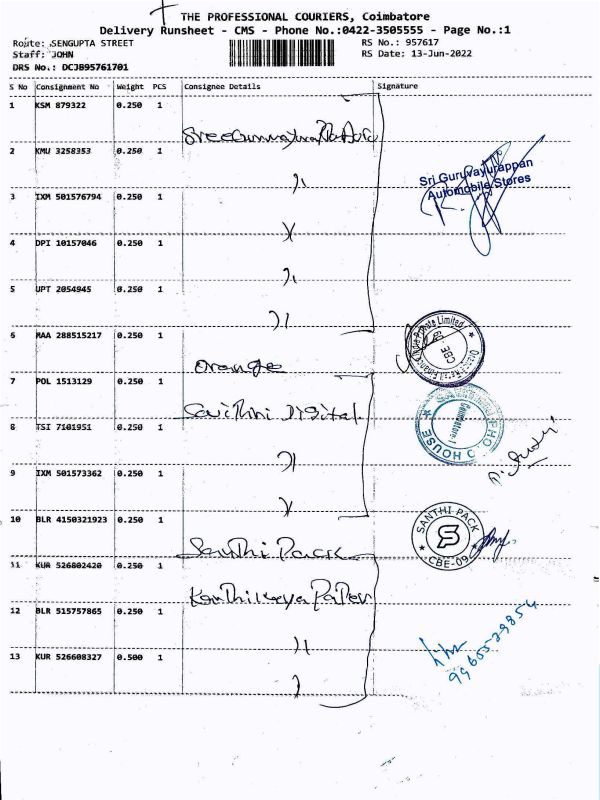 THE PROFESSIONAL COURIERS, Coimbatore
Delivery Runsheet - CMS - Phone No.:0422-3505555 - Page No.:1
Route: SENGUPTA STREET
RS No.: 957617
Staff: JOHN
RS Date: 13-Jun-2022
DRS No.: DCJB95761701
S No Consignment No Weight PCS Consignee Details Signature
1 KSM 879322 0.250 1
2 KMU 3258353 0.250 1
Sri Guruvayurappan
Automobile Stores
3 IXM 501576794 0.250 1
4 DPI 10157046 0.250 1
5 UPT 2054945 0.250 1
6 MAA 288515217 0.250 1 Orange
7 POL 1513129 0.250 1 Savithri Digital
8 TSI 7101951 0.250 1
HOUSE
9 IXM 501573362 0.250 1
10 BLR 4150321923 0.250 1 Santhi Pack
SANTHI PACK
CBE-09
11 KUR 526802420 0.250 1
12 BLR 515757865 0.250 1
13 KUR 526608327 0.500 1